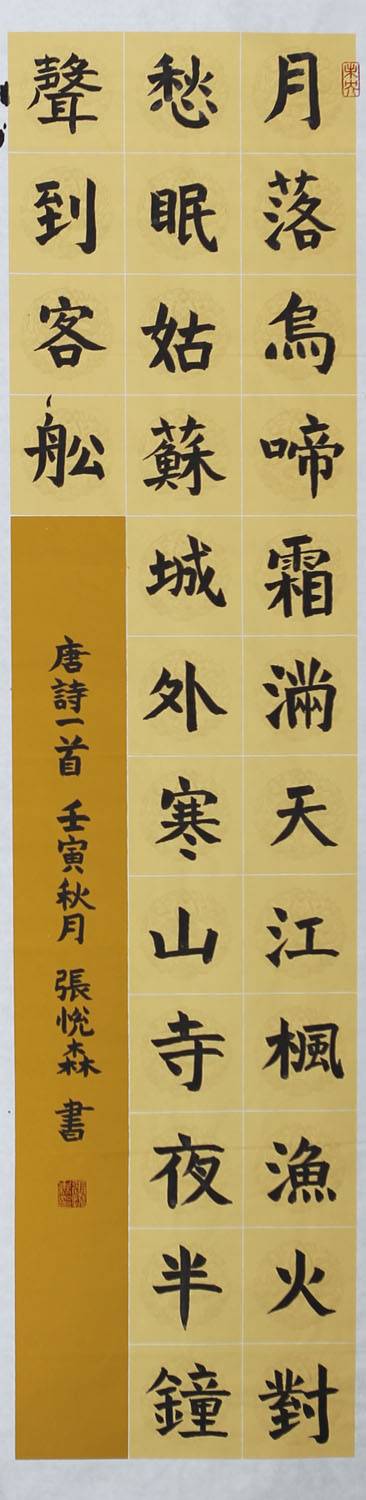 月落烏啼霜滿天江楓漁火對
愁眠姑蘇城外寒山寺夜半鐘
聲到客舩
唐詩一首 壬寅秋月 張悅森 書